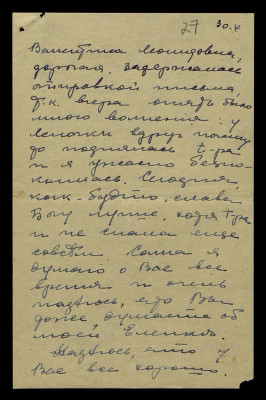 27 30.4
Валентина Леонидовна,
дорогая, задержалась
отправкой письма,
т.к. вчера опять было
много волнения: у
Леночки вдруг
до поднялась t-ра
и я ужасно беспо-
коилась. Сегодня,
как-будто, слава
Богу лучше, хотя t-ра
и не спала еще
совсем. Сама я
думаю о Вас все
время и очень
надеюсь, что Вы
даже думаете об
моей Еленке.
Надеюсь, что у
Вас все хорошо.